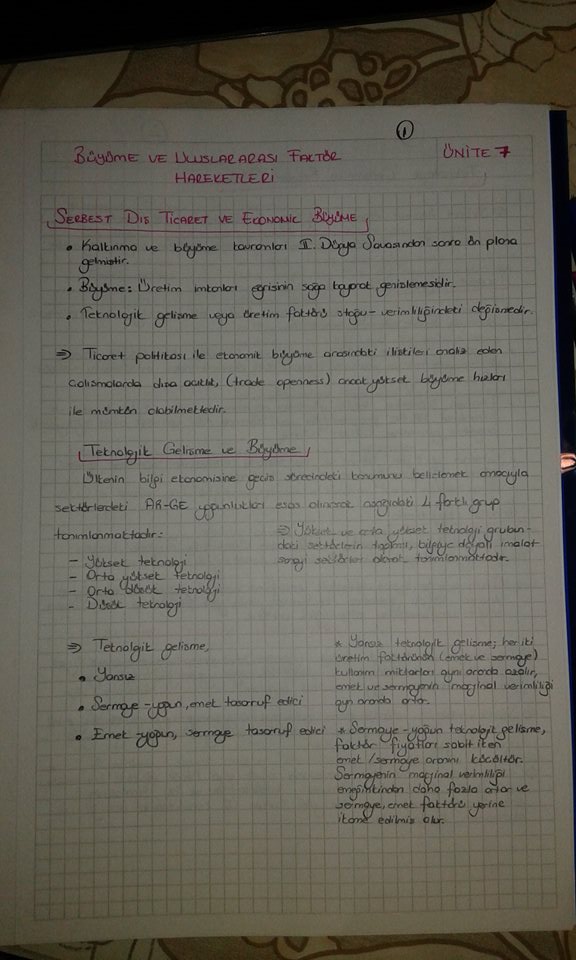 1
BÜYÜME VE ULUSLARARASI FAKTÖR
HAREKETLERİ
ÜNİTE 7
SERBEST DIŞ TİCARET VE ECONOMİC BÜYÜME
• Kalkınma ve büyüme kavramları II. Dünya Savaşından sonra ön plana
gelmiştir.
• Büyüme: Üretim imkanları eğrisinin sağa kayarak genişlemesidir.
• Teknolojik gelişme veya üretim faktörü stoğu-verimliliğindeki değişmedir.
⇒ Ticaret politikası ile ekonomik büyüme arasındaki ilişkileri analiz eden
çalışmalarda dışa açıklık, (trade openness) ancak yüksek büyüme hızları
ile mümkün olabilmektedir.
Teknolojik Gelişme ve Büyüme
Ülkenin bilgi ekonomisine geçiş sürecindeki konumunu belirlemek amacıyla
sektörlerdeki AR-GE yoğunlukları esas alınarak aşağıdaki 4 farklı grup
tanımlanmaktadır:
- Yüksek teknoloji
- Orta yüksek teknoloji
- Orta düşük teknoloji
- Düşük teknoloji
⇒ Yüksek ve orta yüksek teknoloji grubun-
daki sektörlerin toplamı, bilgiye dayalı imalat
sanayi sektörleri olarak tanımlanmaktadır.
⇒ Teknolojik gelişme,
• Yansız
• Sermaye-yoğun, emek tasarruf edici
• Emek-yoğun, sermaye tasarruf edici
* Yansız teknolojik gelişme; her iki
üretim faktörünün (emek ve sermaye)
kullanım miktarları aynı oranda azalır,
emek ve sermayenin marginal verimliliği
aynı oranda artar.
* Sermaye-yoğun teknolojik gelişme,
faktör fiyatları sabit iken
emek/sermaye oranını küçültür.
Sermayenin marginal verimliliği
emeğinkinden daha fazla artar ve
sermaye, emek faktörü yerine
ikame edilmiş olur.